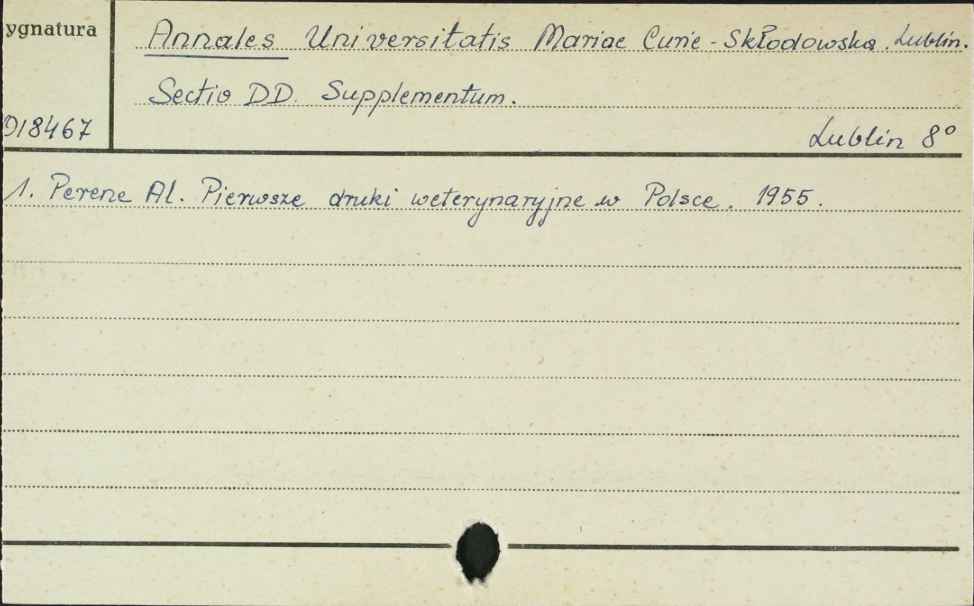 ygnatura
Annales Universitatis Mariae Curie-Skłodowska. Lublin.
Sectio DD. Supplementum.
918467
Lublin 8°
1. Perenc Al. Pierwsze druki weterynaryjne w Polsce. 1955.